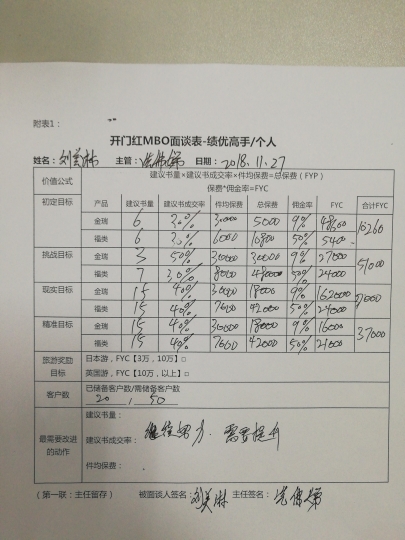 附表1：
开门红MBO面谈表-绩优高手/个人
姓名：刘美琳 主管： 日期：2018.11.27
价值公式 建议书量×建议书成交率×件均保费=总保费（FYP）
保费*佣金率=FYC
初定目标 产品 建议书量 建议书成交率 件均保费 总保费 佣金率 FYC 合计FYC
金瑞 6 30% 5000 9% 10260
福类 6 30% 6000 10800 50% 5400
挑战目标 金瑞 3 50% 30000 9% 27000 51000
福类 7 8000 48000 50% 24000
现实目标 金瑞 15 40% 9%
福类 15 40% 7000 42000 50%
精准目标 金瑞 15 40% 9% 37000
福类 15 40% 7000 42000 50% 21000
旅游奖励目标 日本游，FYC【3万，10万】□
英国游，FYC【10万，以上】□
客户数 已储备客户数/需储备客户数
20 , 50
最需要改进的动作 建议书量：
建议书成交率： 继续努力．需要提升
件均保费：
（第一联：主任留存） 被面谈人签名：刘美琳 主任签名：